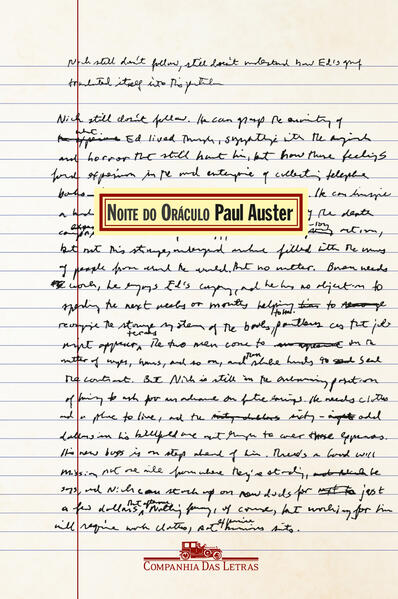 Nick still don't follow, still doesn't understand how Ed's grief
translated itself into this particular
Nick still doesn't follow. He can grasp the enormity of
what Ed lived through, sympathize with the anguish
and horror that still haunt him, but how those feelings
found expression in the mad enterprise of collecting telephone
books
. He can imagine
NOITE DO ORÁCULO PAUL AUSTER
the death
action,
but not this strange, underground archive filled with the names
of people from around the world. But no matter. Bowen needs
work, he enjoys Ed's company, and he has no objection to
spending the next weeks or months helping him to
reorganize the storage system of the books, pointless as that job
might appear. The two men come to on the
matter of wages, hours, and so on, and then shake hands to seal
the contract. But Nick is still in the position
of having to ask for an advance on future earnings. He needs clothes
and a place to live, and the sixty-odd
dollars in his billfold are not enough to cover those expenses.
His new boss is one step ahead of him. There's a Good Will
Mission not one mile from where they're standing,
says, and Nick can stock up on new duds for just
a few dollars. Nothing fancy, of course, but working for him
will require work clothes, not business suits.
COMPANHIA DAS LETRAS